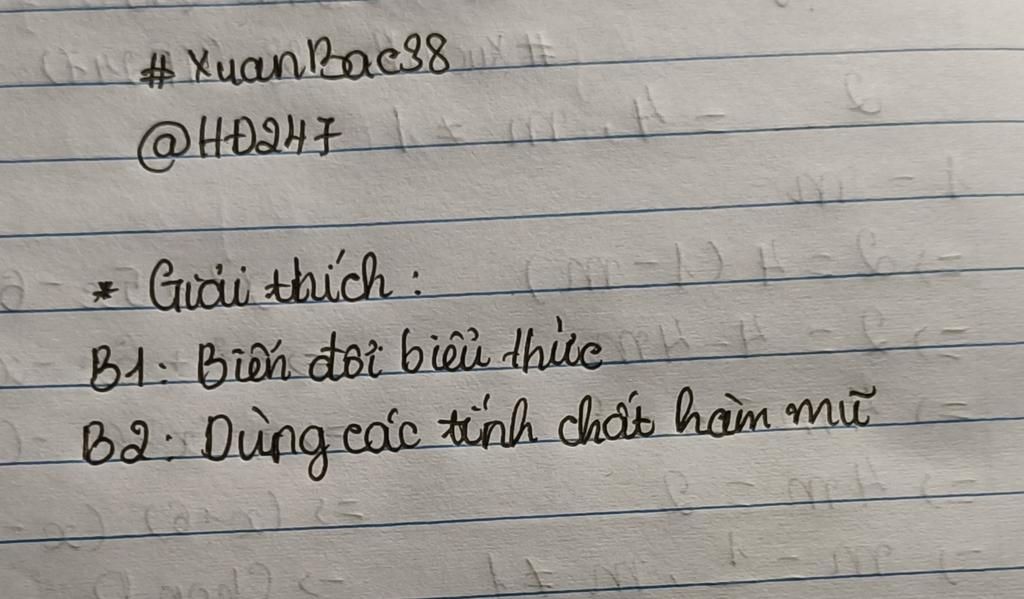 # XuanBac98
@HĐ247
* Giải thích:
B1: Biến đổi biểu thức
B2: Dùng các tính chất hàm mũ